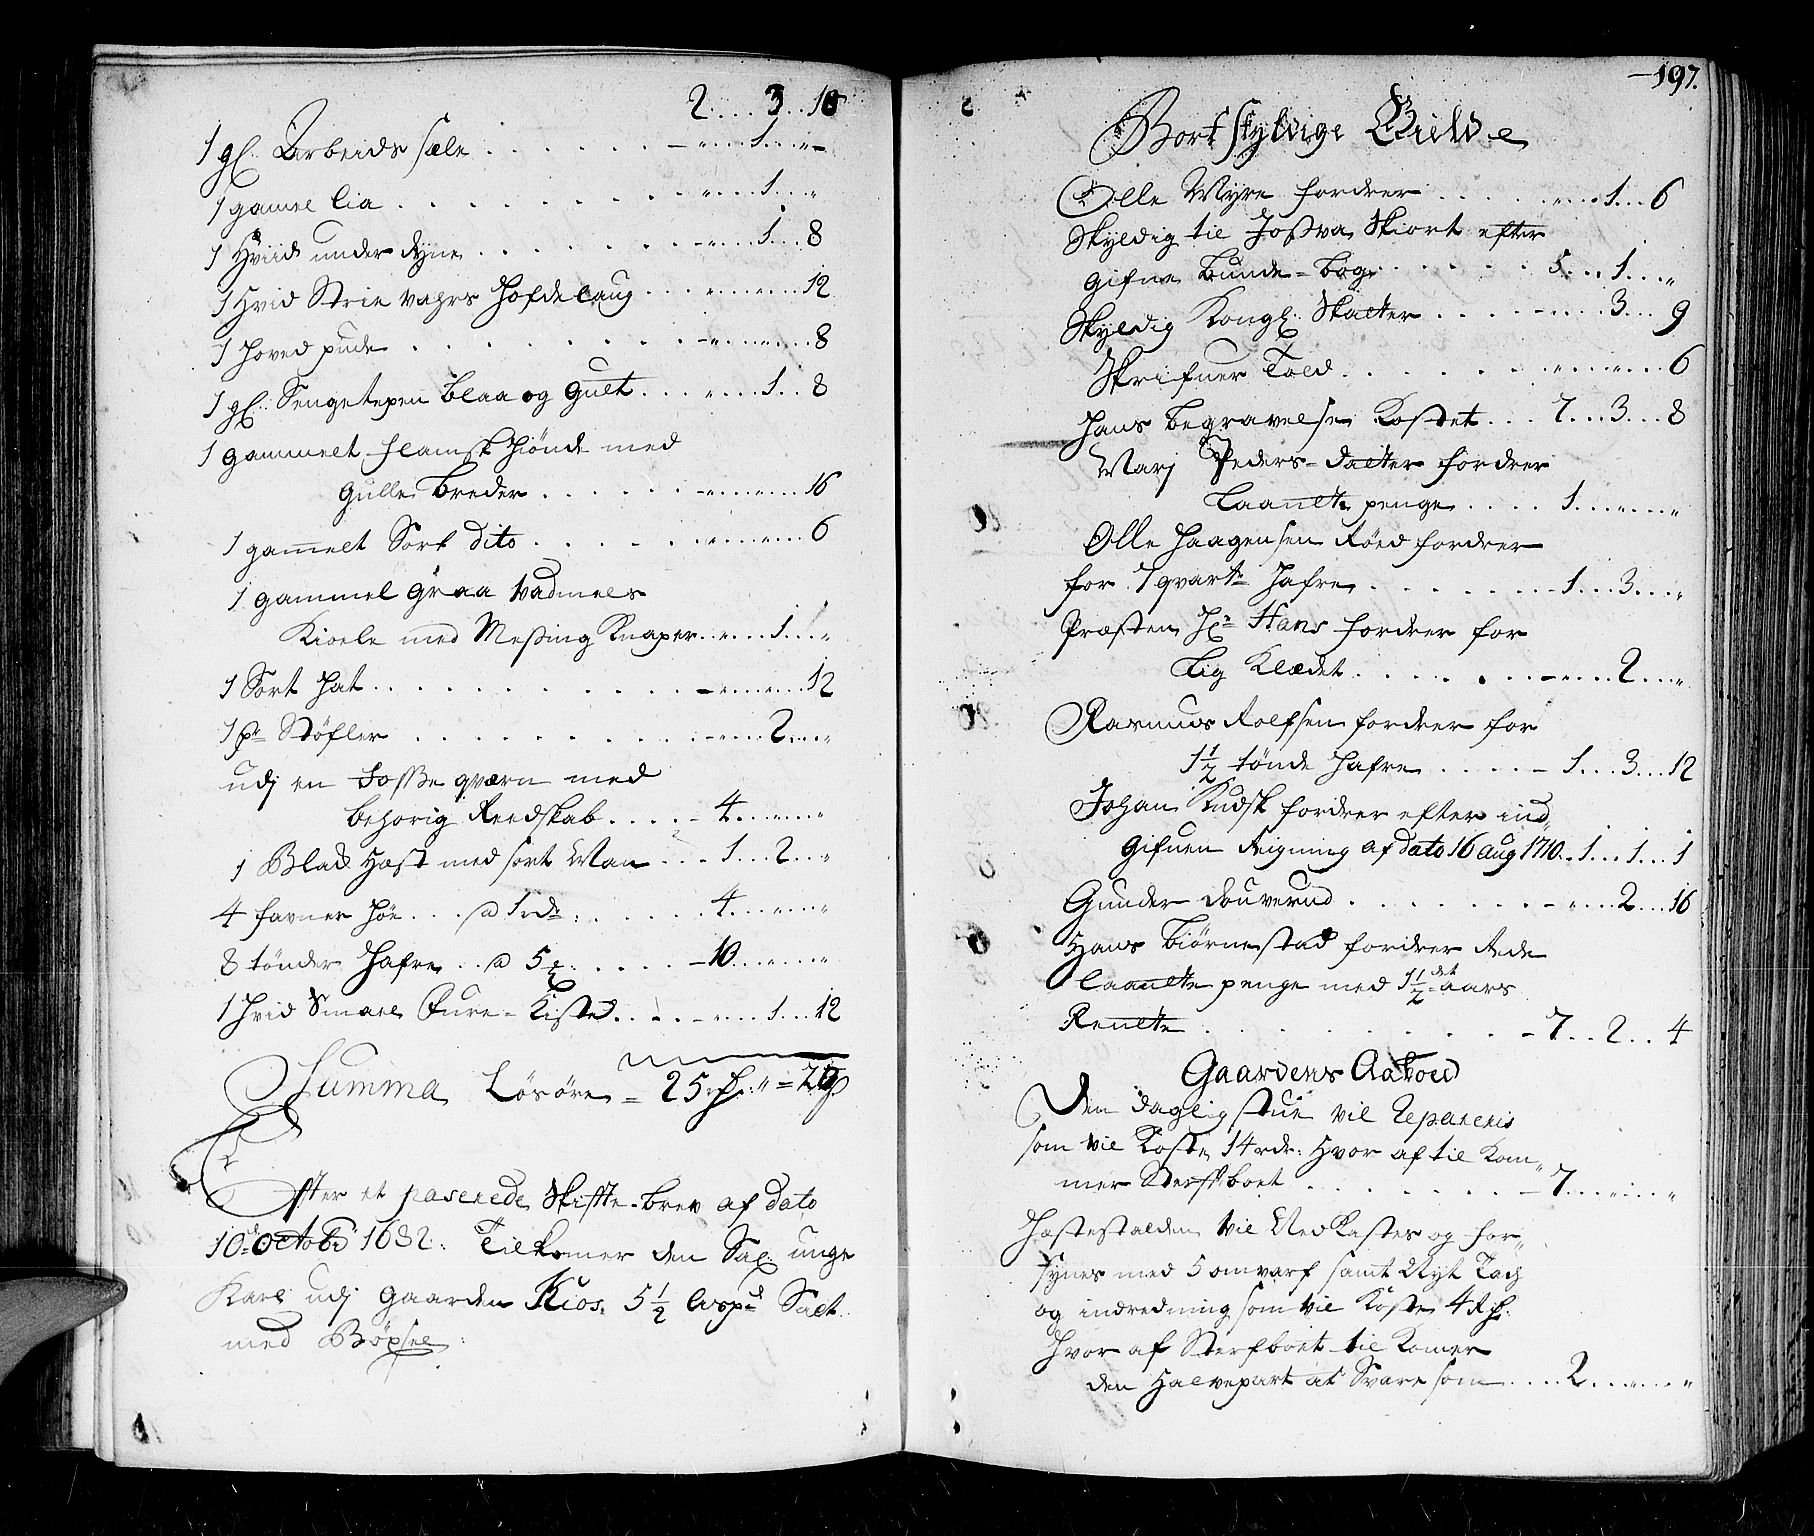 2....3..18
1 gl. Arbeids sæle . . . . . . - "....1...."-
1 gamel lia . . . . . . . . - "....1...."
1 Hviid under dyne . . . . . . - "....1...8
1 Hvid Strie vahrs Hofdelaug . . . "...."....12
1 hoved pude . . . . . . . . - "...."....8
1 gl: Sengetepen blaa og Guelt . . . "....1...8
1 gammelt flamsk hiønde med
Gulle breder . . . . . - "...."....16
1 gammelt Sort dito . . . . . . "...."....6
1 gammel Graa vadmels
Kiole med Messing Knaper . . "....1...."
1 Sort hat . . . . . . . . . - "...."....12
1 pr Støfler . . . . . . . . - "....2...."
udj en fosse qværn med
behørig Reedskab . . . . - 4...."...."
1 Blak Hæst med sort Man . . . 1...2...."
4 favner høe . . . a 1 rdr . . . . . 4...."...."
8 tønder Hafre . . a 5 . . . . . - 10...."...."
1 hvid Smael Fure-Kiste . . . . - "....1...12
Summa Løsøre = 25 rdr: " = 20 s
Efter et paserede Skifte-brev af dato
10de Octobr 1682: Tilkomer den Sal. unge
Karl udj Gaarden Kios. 5 1/2 lispd Salt
med Böxsel:
197.
Bortskyldige Gield
Olle Myre fordrer . . . . . "....1...6
Skyldig til Jossva Skiort efter
gifne bunde-bog . . . . . . 5...1...."
Skyldig Kongl. Skatter . . . . - "....3...9
Skrifuer Told . . . . . . "...."....6
Hans begravelse Kostet . . . 7...3...8
Marj Peders-datter fordrer
Laante penge . . . . 1...."...."
Olle Haagensen Røed fordrer
for 7 qvartr Hafre . . . . . . . - 1...3...."
Præsten Hr Hans fordrer for
Lig Klædet . . . . . . - "....2...."
Rasmus Rolfsen fordrer for
1 1/2 tønde Hafre . . . . . - 1...3...12
Johan Kudsk fordrer efter ind
Gifuen Reigning af dato 16 aug 1710. - 1...1...1
Gunder Louverud . . . . . . . - "....2...16
Hans Biørnestad fordrer Rede
laante penge med 1 1/2 det aars
Rente . . . . . . . . . - 7...2...4
Gaardens Aaboud
Den daglig stue vil Repareris
som vil koste 14 rdr: Hvor af til kom-
mer Sterfboet . . . . . . . - 7...."...."
Hæstestalden vil Nedkastes og for-
synes med 5 omvarf samt Nyt tag
og indredning som vil koste 4 Rdr.
Hvor af Sterfboet til komer
den Halvepart at Svare som . . . . 2...."...."